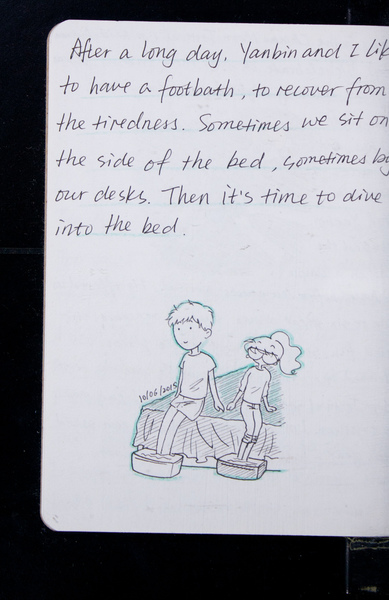 After a long day, Yanbin and I lik
to have a footbath, to recover from
the tiredness. Sometimes we sit on
the side of the bed, sometimes by
our desks. Then it's time to dive
into the bed.
10/06/2015